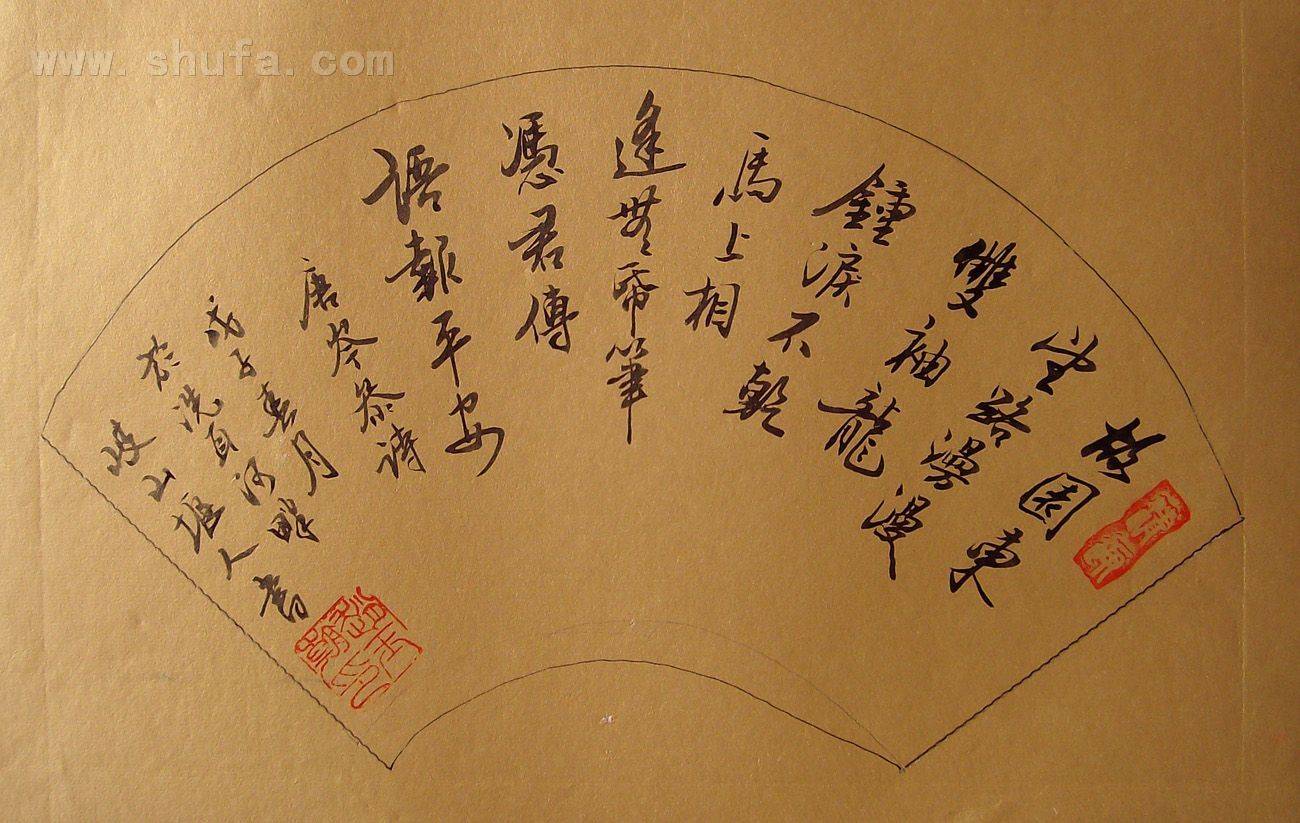 www.shufa.com
故園東
望路漫漫
雙袖龍
鍾淚不乾
馬上相
逢無帋筆
憑君傳
語報平安
唐岑參詩
戊子春月
於洗耳河畔
山人書